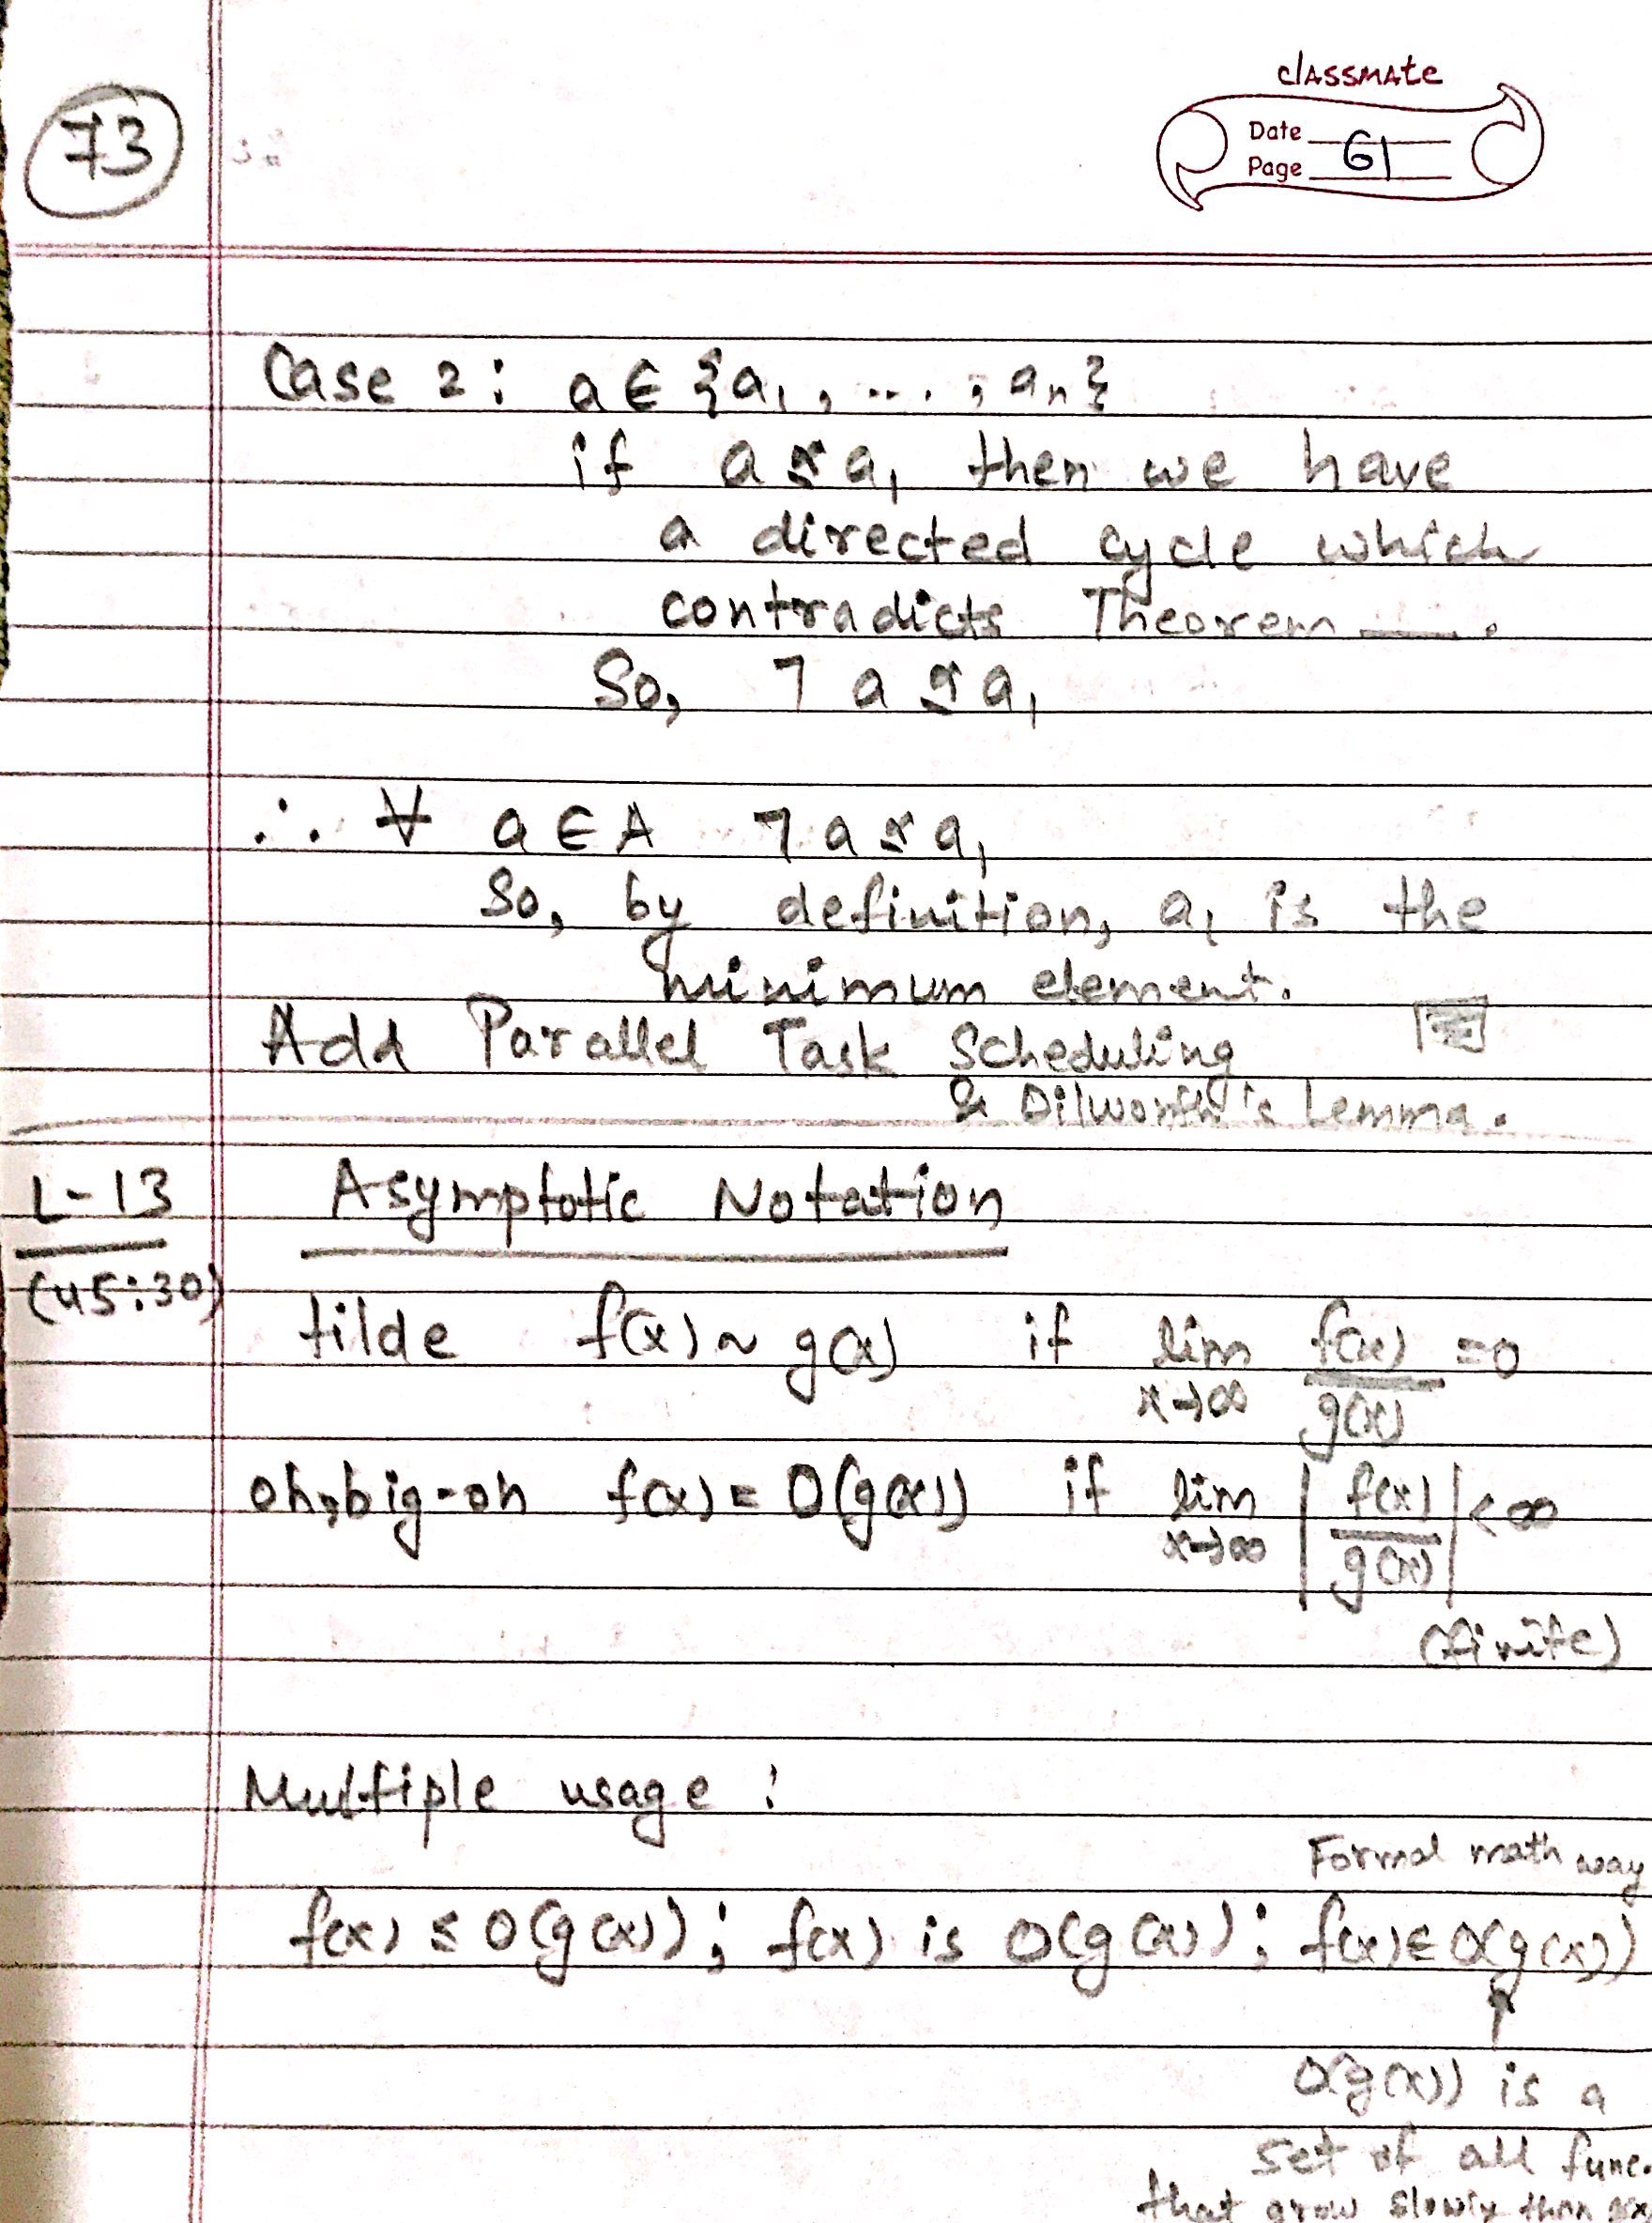 73
classmate
Date
Page 61
Case 2: a ∈ {a₁, ...., aₙ}
if a ⪯ a₁ then we have
a directed cycle which
contradicts Theorem ___.
So, ¬ a ⪯ a₁
∴ ∀ a ∈ A ¬ a ⪯ a₁
So, by definition, a₁ is the
minimum element.
Add Parallel Task Scheduling
& Dilworth's Lemma.
L-13 Asymptotic Notation
(45:30)
tilde f(x) ~ g(x) if lim x→∞ f(x)/g(x) = 0
oh, big-oh f(x) = O(g(x)) if lim x→∞ |f(x)/g(x)| < ∞
(finite)
Multiple usage :
Formal math way
f(x) ≤ O(g(x)); f(x) is O(g(x)); f(x) ∈ O(g(x))
O(g(x)) is a
set of all func.
that grow slowly than